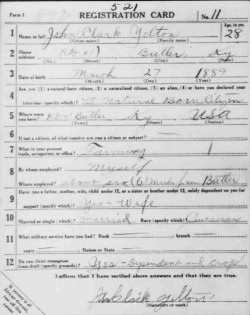 521
Form 1
REGISTRATION CARD
No. 11
1 Name in full John Clark Yelton
(Given name) (Family name)
Age, in yrs.
28
2 Home address R.D. #1 Butler, Ky
3 Date of birth March 27 1889
(Month) (Day) (Year)
4 Are you (1) a natural-born citizen, (2) a naturalized citizen, (3) an alien, (4) or have you declared your intention (specify which)? Natural Born Citizen
5 Where were you born? Butler Ky USA
(Town) (State) (Nation)
6 If not a citizen, of what country are you a citizen or subject?
7 What is your present trade, occupation, or office? Farming 1
8 By whom employed? Myself
Where employed? about six (6) miles from Butler
9 Have you a father, mother, wife, child under 12, or a sister or brother under 12, solely dependent on you for support (specify which)? Yes - Wife
10 Married or single (which)? Married Race (specify which)? Caucasian
11 What military service have you had? Rank branch
years Nation or State
12 Do you claim exemption from draft (specify grounds)? Yes - Dependent and crops
I affirm that I have verified above answers and that they are true.
John Clark Yelton
(Signature or mark)